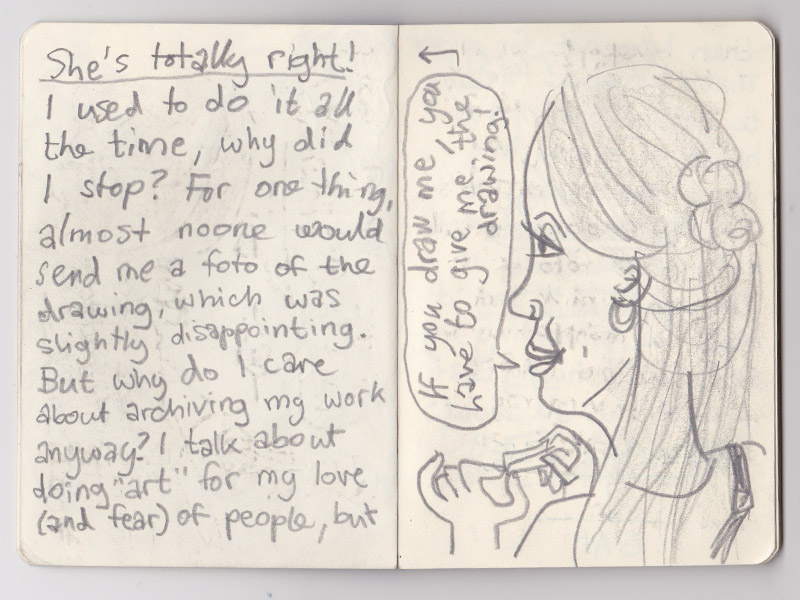 She's totally right!
I used to do it all
the time, why did
I stop? For one thing,
almost noone would
send me a foto of the
drawing, which was
slightly disappointing.
But why do I care
about archiving my work
anyway? I talk about
doing "art" for my love
(and fear) of people, but
If you draw me, you
have to give me the
drawing!